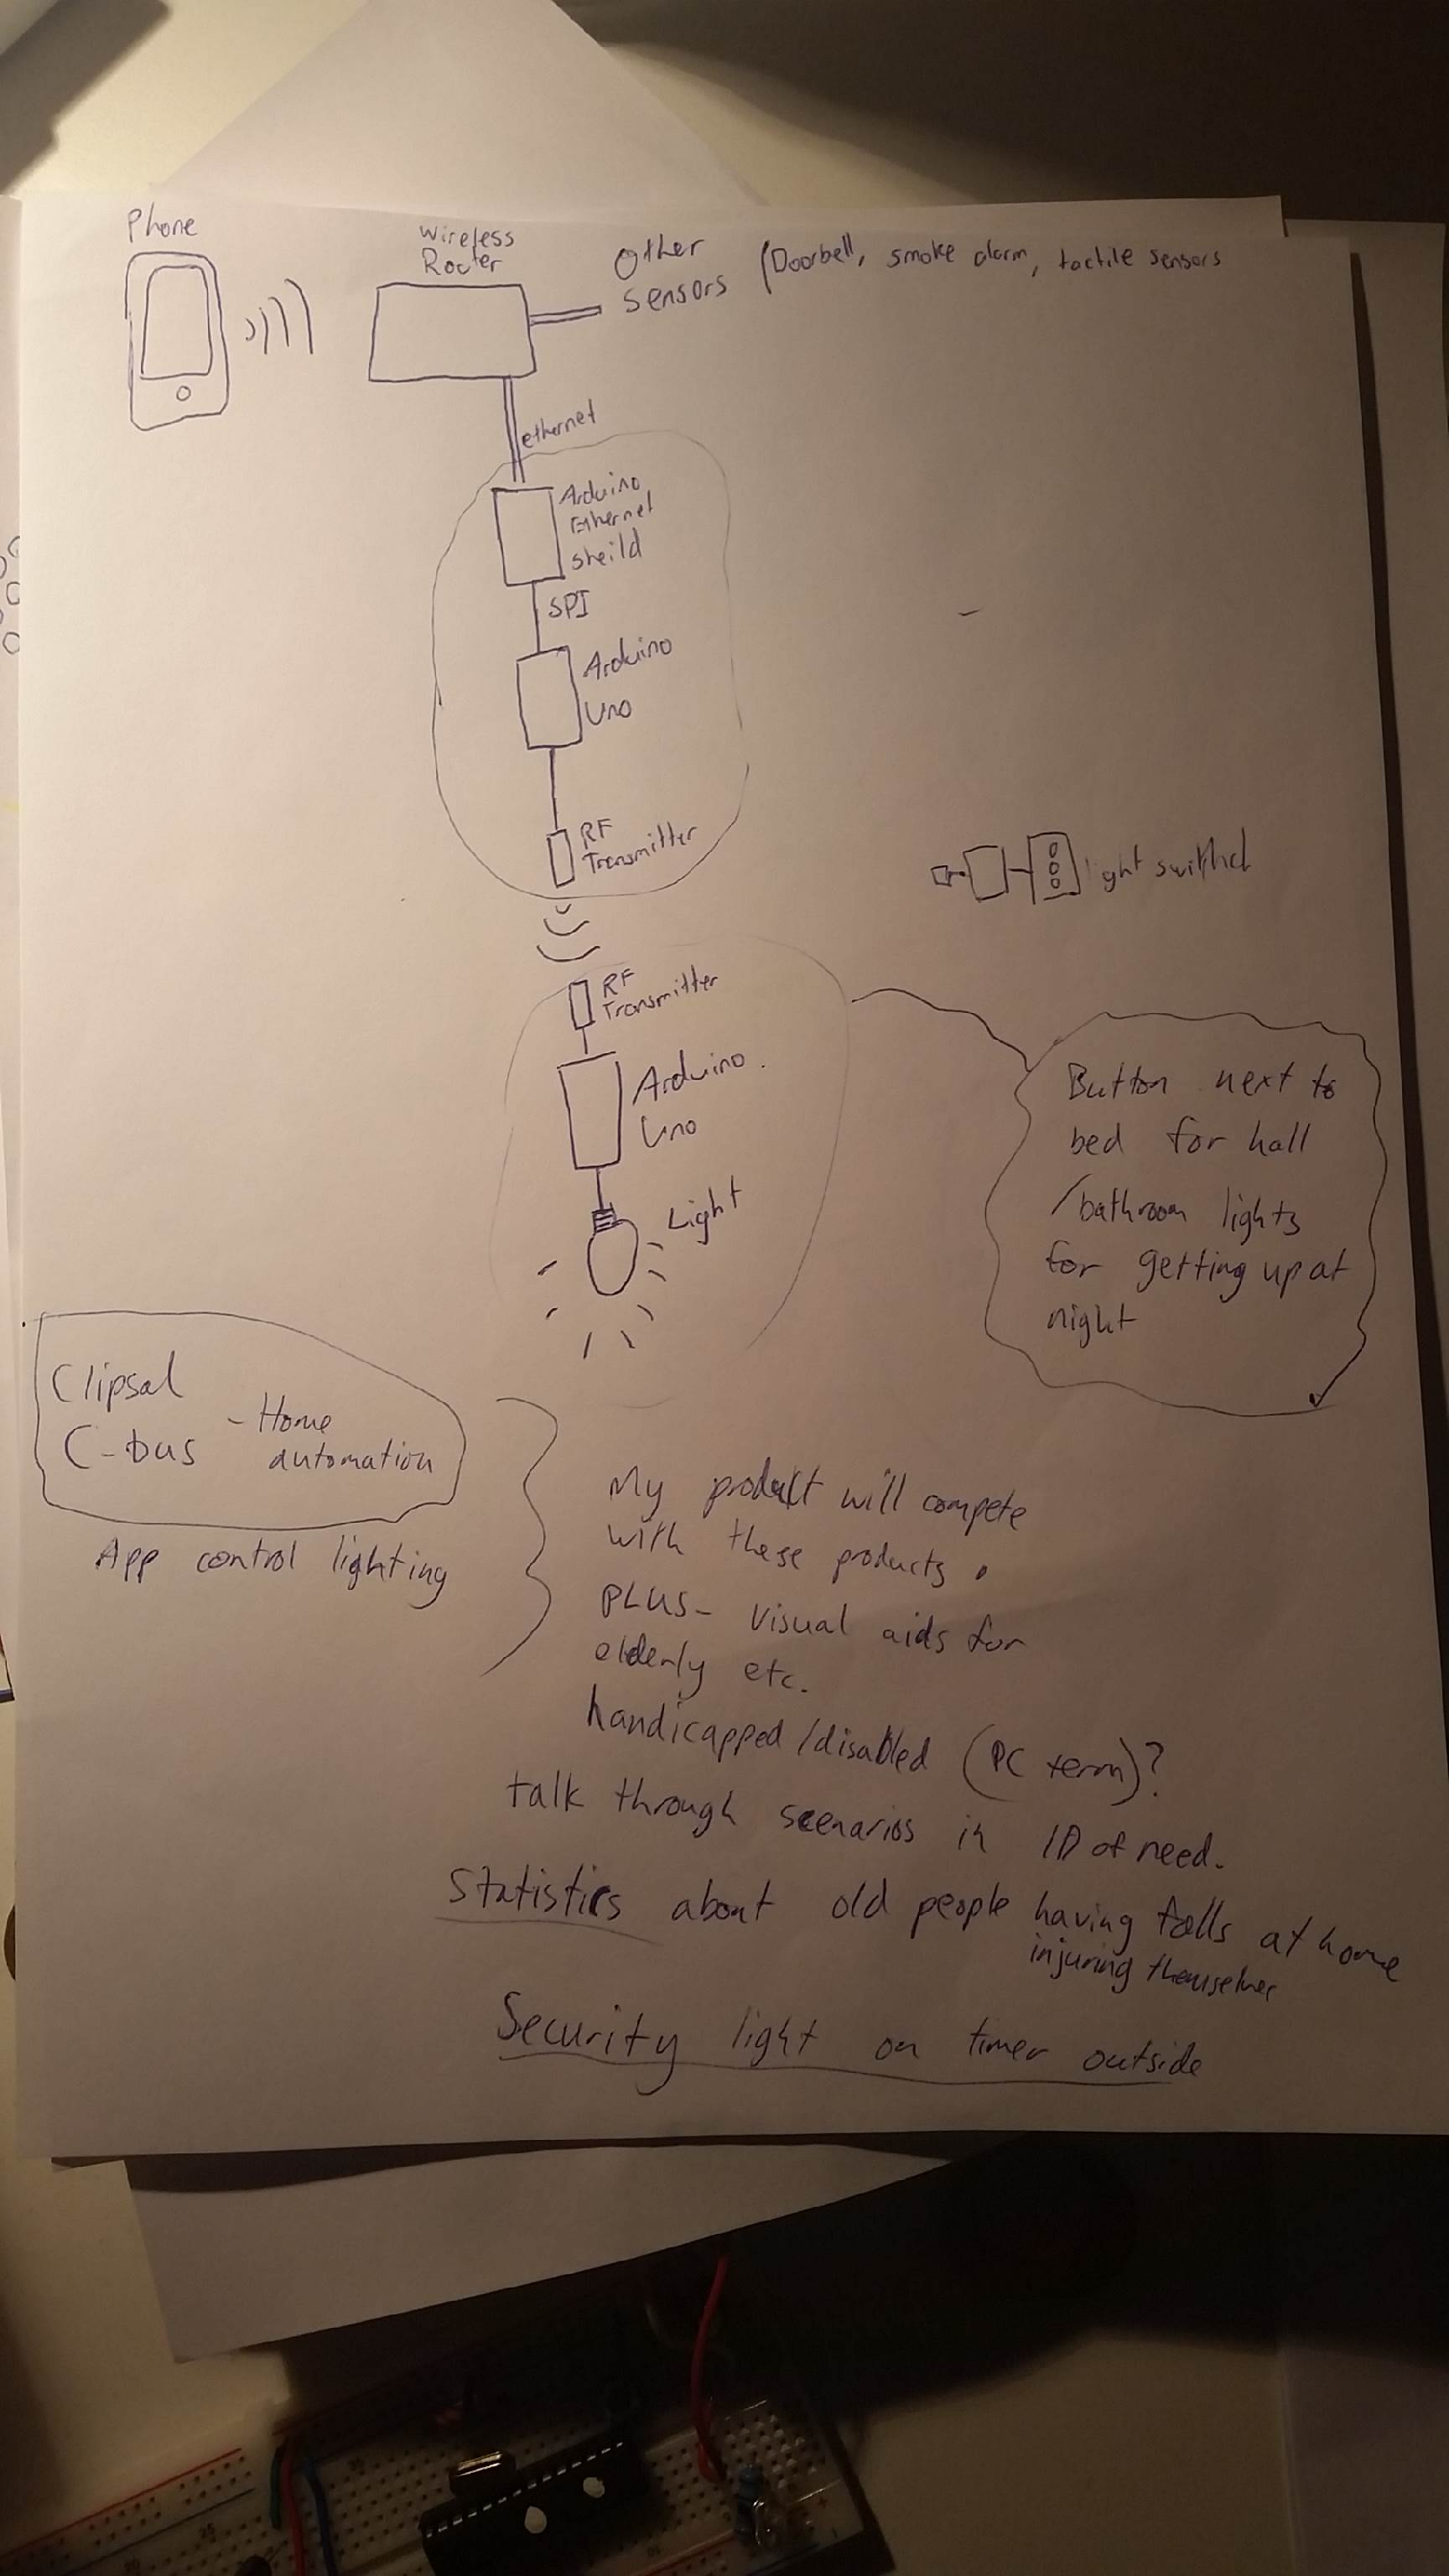 Phone
Wireless
Rooter
Other
sensors
(Doorbell, smoke alarm, tactile sensors
ethernet
Arduino
Ethernet
sheild
SPI
Arduino
Uno
RF
Transmitter
light switch
RF
Transmitter
Arduino.
Uno
Light
Button next to
bed for hall
/bathroom lights
for getting up at
night
Clipsal
C-bus
- Home
automation
App control lighting
My product will compete
with these products.
PLUS - visual aids for
elderly etc.
handicapped/disabled (PC term)?
talk through scenarios in ID of need.
Statistics about old people having falls at home
injuring themselves
Security light on timer outside